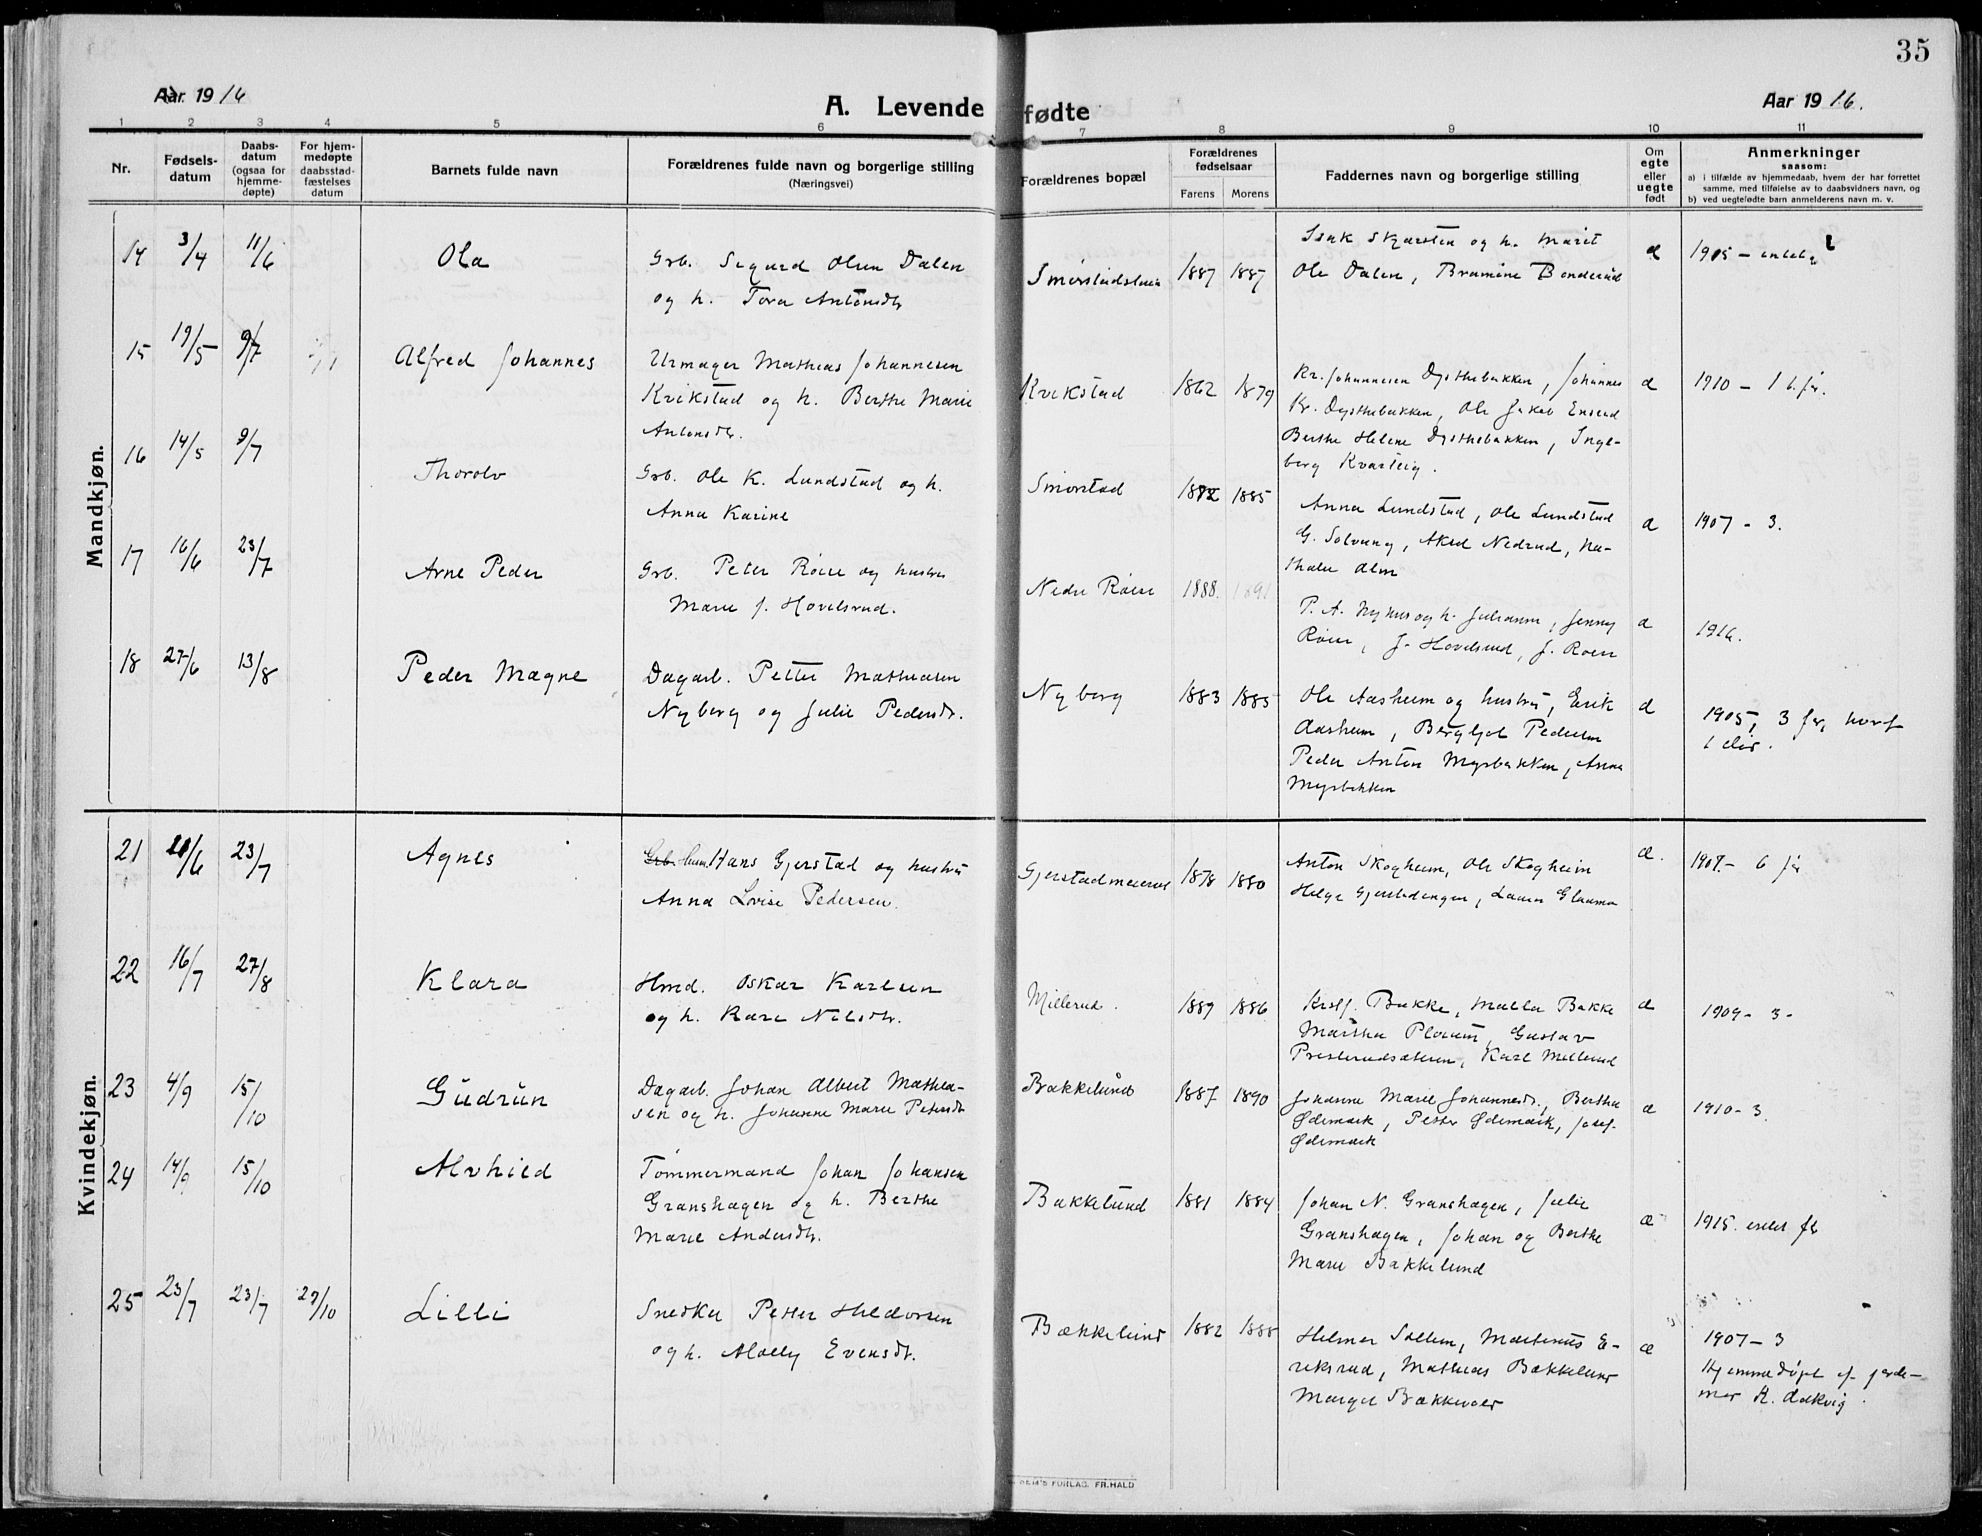 35
Aar. 1916
A. Levende fødte
Aar 1916.
1 2 3 4 5 6 7 8 9 10 11
Nr.
Fødsels-
datum
Daabs-
datum
(ogsaa for
hjemme-
døpte)
For hjem-
medøpte
daabsstad-
fæstelses
datum
Barnets fulde navn
Forældrenes fulde navn og borgerlige stilling
(Næringsvei)
Forældrenes bopæl
Forældrenes
fødselsaar
Farens Morens
Faddernes navn og borgerlige stilling
Om
egte
eller
uegte
født
Anmerkninger
saasom:
a) i tilfælde av hjemmedaab, hvem der har forrettet
samme, med tilføielse av to daabsvidners navn, og
b) ved uegtefødte barn anmelderens navn m. v.
Mandkjøn.
14 3/4 11/6 Ola
Grb. Sigurd Olsen Dalen
og h. Tora Antonsdtr
1887 1887
Isak Skjarsten og h. Marit
Ole Dalen, Bramine Bonderud
æ
1905 -
15 19/5 9/7 Alfred Johannes
Urmager Mathias Johannesen
Krikstad og h. Berthe Marie
Antonsdtr.
Krikstad 1862 1879
Kr. Johannesen Dysthebakken, Johannes
Kr. Dysthebakken, Ole Jakob Enserud
Berthe Helene Dysthebakken, Inge-
berg
æ
1910 -
16 14/5 9/7 Thorolv
Grb. Ole K. Lundstad og h.
Anna Karine
Smørstad 1885
Anna Lundstad, Ole Lundstad
G. Solvang, Aksel Nedrud, Na-
thalie Alm
æ
1907 - 3.
17 16/6 23/7 Arne Peder
Grb. Peter Røise og hustru
Marie J. Hovelsrud.
Nedre Røise 1888. 1891
P. A. Nyhus og h. Julianne, Jenny
Røise, J. Hovelsrud, J. Røise
æ
1916.
18 27/6 13/8 Peder Magne
Dagarb. Petter Mathiasen
Nyberg og Julie Pedersdtr.
Nyberg 1883 1885
Ole Aasheim og hustru, Erik
Aasheim, Bergljot Pedersen
Peder Anton Myrbakken, Anna
Myrbakken
æ
1905, 3 før, hvoraf
1 død.
Kvindekjøn.
21 23/7 Agnes
Hans Gjerstad og hustru
Anna Lovise Pedersen.
1878 1880
Anton Skogheim, Ole Skogheim
Helge Gjerstadengen, Laura Glaama
æ.
1907. - 6 før
22 16/7 27/8 Klara
Hmd. Oskar Karlsen
og h. Kari Nilsdtr.
Millerud. 1889 1886
Kristf. Bakke, Malla Bakke
Martha Plorum, Gustav
Presterudsæteren, Karl Millerud
æ
1909 - 3 -
23 4/9 15/10 Gudrun
Dagarb. Johan Albert Mathia-
sen og h. Johanne Marie Petersdtr
Bækkelund 1887 1890
Johanne Marie Johannesdtr., Bertha
Ødemark, Petter Ødemark, Josef
Ødemark
æ
1910 - 3.
24 14/9 15/10 Alvhild
Tømmermand Johan Johansen
Granshagen og h. Berthe
Marie Andersdtr.
Bækkelund 1881 1884
Johan N. Granshagen, Julie
Granshagen, Johan og Berthe
Marie Bækkelund
æ
1915.
25 23/7 23/7 29/10 Lilli
Snedker Petter Hildorsen
og h. Molly Evensdtr.
Bækkelund 1882 1888
Helmer Sollien, Martinus E-
riksrud, Mathias Bækkelund
Margit Bækkevold
æ
1907 - 3
Hjemmedøpt af jorde-
mor A. Aalkvig.
FORLAG. FR. HALD